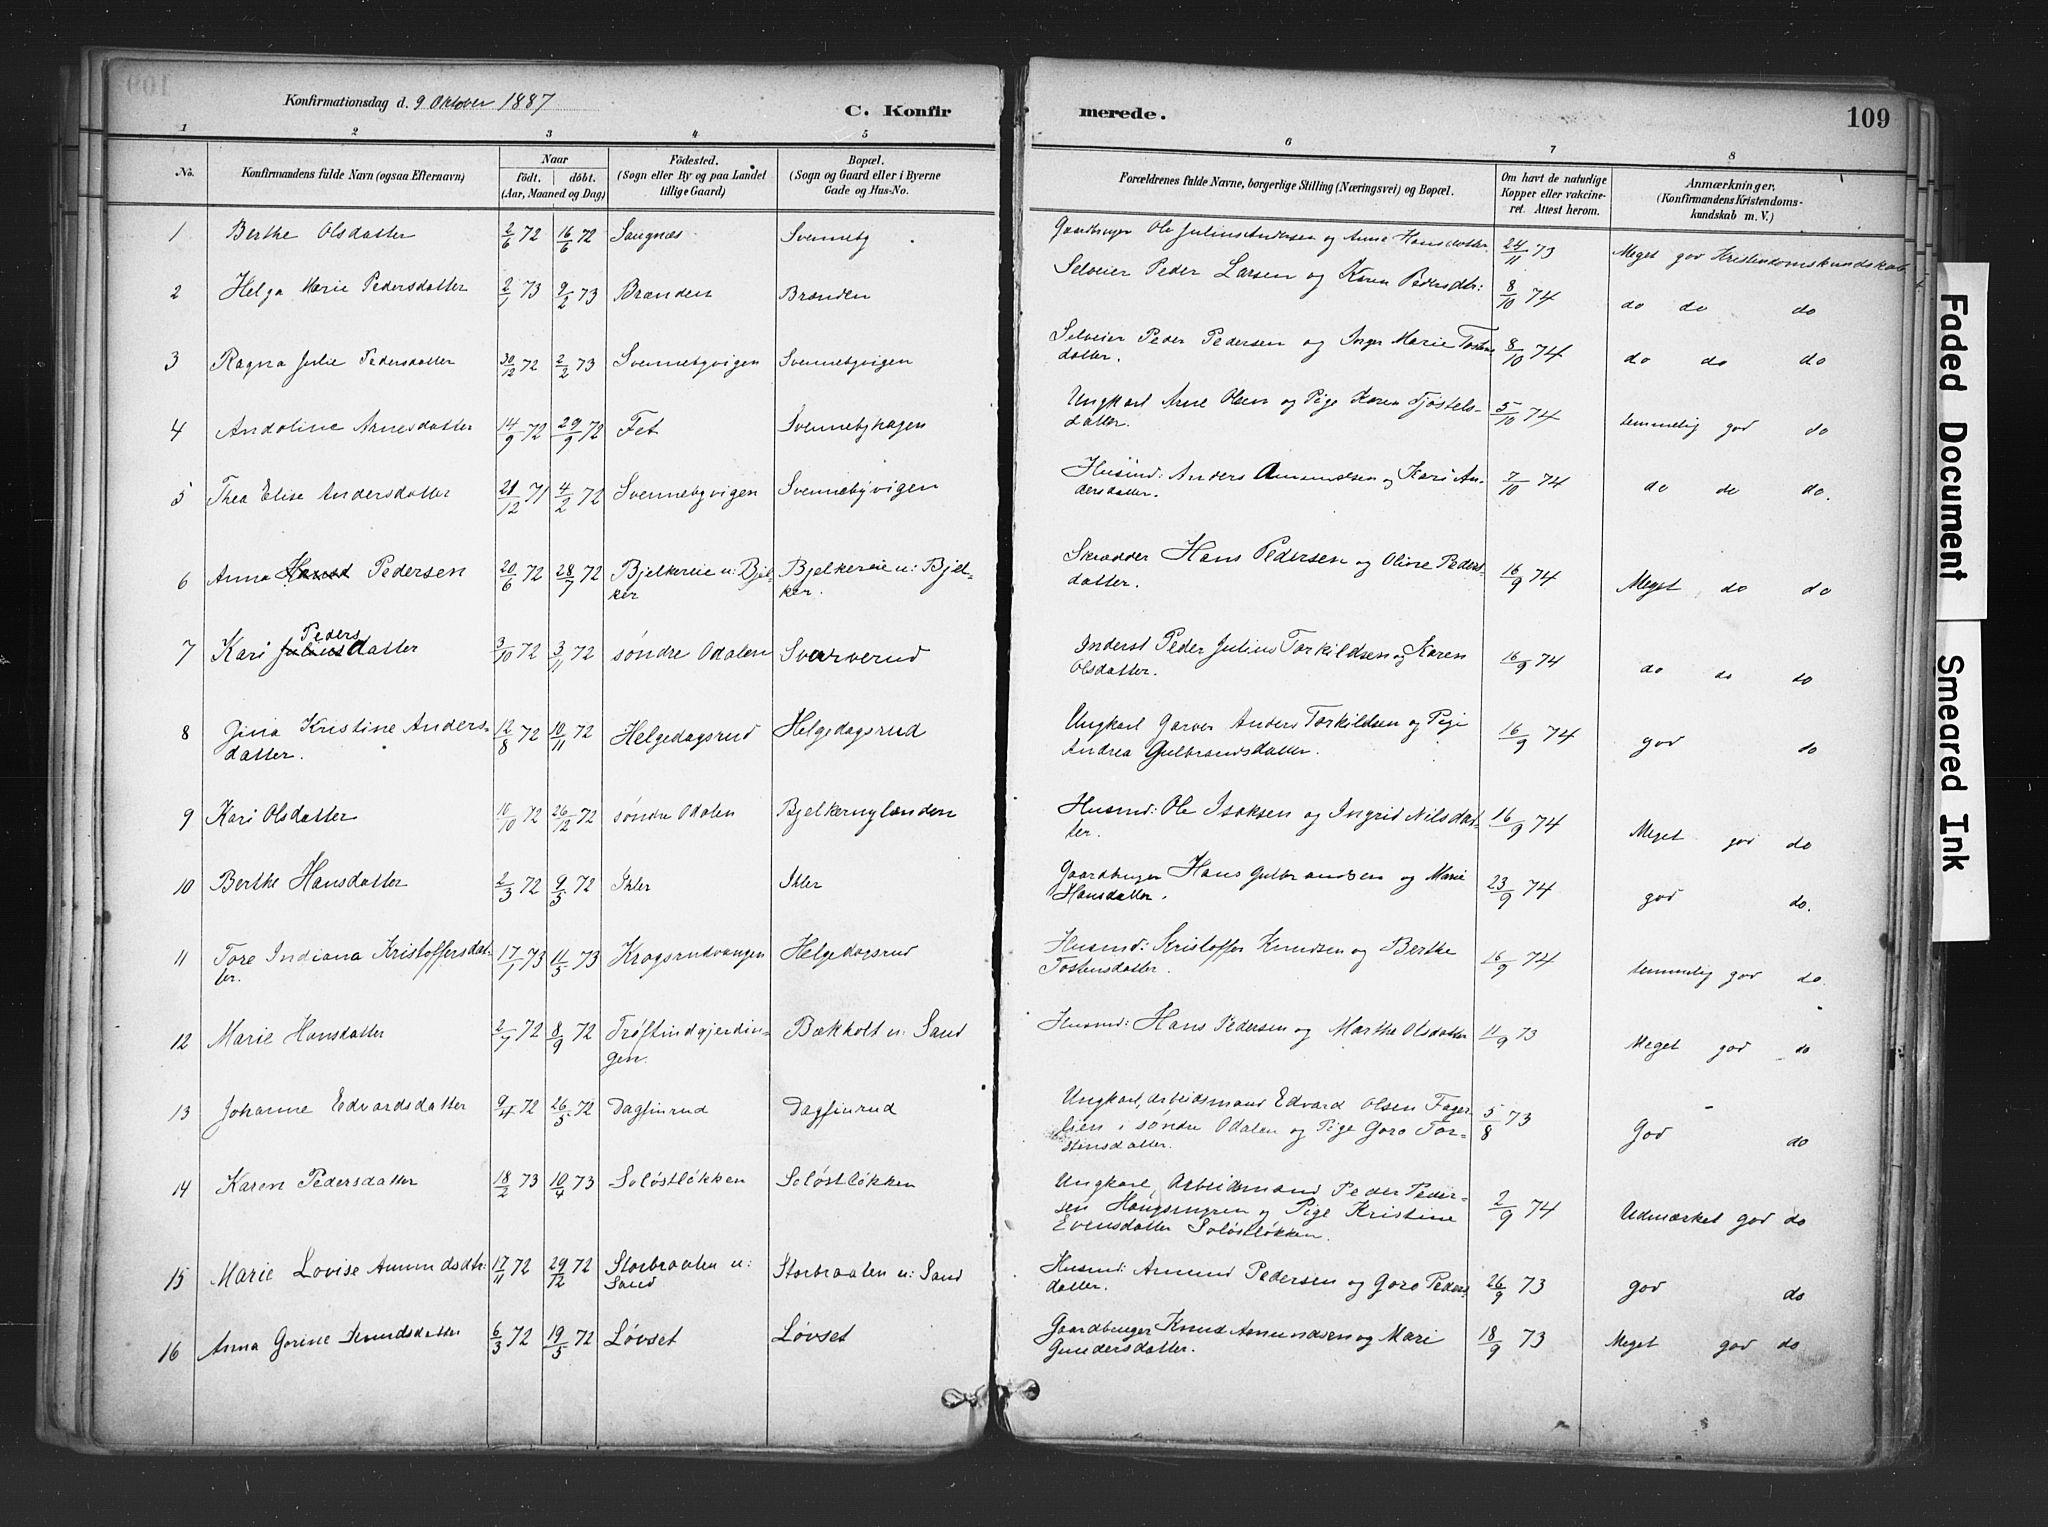 109
Konfirmationsdag d. 9 Oktober 1887
C. Konfirmerede.
1 2 3 4 5 6 7 8
No. Konfirmandens fulde Navn (ogsaa Efternavn) Naar födt. döbt. (Aar, Maaned og Dag) Födested. (Sogn eller By og paa Landet tillige Gaard) Bopæl. (Sogn og Gaard eller i Byerne Gade og Hus-No. Forældrenes fulde Navne, borgerlige Stilling (Næringsvei) og Bopæl. Om havt de naturlige Kopper eller vakcineret. Attest herom. Anmærkninger, (Konfirmandens Kristendomskundskab m. V.)
1 Berthe Olsdatter 2/6 72 16/6 72 Sangnæs Svenneby Gaardbruger Ole Julius Andersen og Anne Hansdatter. 24/11 73 Meget god Kristendomskundskab
2 Helga Marie Pedersdatter 2/1 73 9/2 73 Brænden Brænden Selveier Peder Larsen og Karen Pedersdtr: 8/10 74 do do do
3 Ragna Julie Pedersdatter 30/12 72 2/2 73 Svennebyvigen Svennebyvigen Selveier Peder Pedersen og Inger Marie Tostensdatter. 8/10 74 do do do
4 Andoline Arnesdatter 14/9 72 29/9 72 Fet Svennebyhagen Ungkarl Arne Olsen og Pige Karen Tjøstelsdatter. 5/10 74 temmelig god do
5 Thea Elise Andersdatter 21/12 71 4/2 72 Svennebyvigen Svennebyvigen Husmd: Anders Amundsen og Kari Andersdatter. 7/10 74 do do do.
6 Anna Pedersen 20/6 72 28/7 72 Bjelkereie u: Bjelker Bjelkereie u: Bjelker. Skrædder Hans Pedersen og Oline Pedersdatter. 16/9 74 Meget do do
7 Kari Julius Pedersdatter 3/10 72 3/11 72 søndre Odalen Svarverud Inderst Peder Julius Torkildsen og Karen Olsdatter. 16/9 74 do do do
8 Jina Kristine Andersdatter. 12/8 72 10/11 72 Helgedagsrud Helgedagsrud Ungkarl Garver Anders Torkildsen og Pige Andrea Gulbrandsdatter. 16/9 74 god do
9 Kari Olsdatter 10/10 72 26/12 72 søndre Odalen Bjelkernylænden Husmd: Ole Isaksen og Ingrid Nilsdatter. 16/9 74 Meget god do
10 Berthe Hansdatter 2/3 72 9/5 72 Ihler Ihler Gaardbruger Hans Gulbrandsen og Marie Hansdatter. 23/9 74 god do.
11 Tore Indiana Kristoffersdatter. 17/1 73 11/5 73 Krogsrudvangen Helgedagsrud Husmd: Kristoffer Knudsen og Berthe Tostensdatter. 16/9 74 temmelig god do
12 Marie Hansdatter 2/7 72 8/9 72 Trøftindgjerdingen. Bækholt u: Sand Husmd: Hans Pedersen og Marthe Olsdatter 11/9 73 Meget god do
13 Johanne Edvardsdatter 9/4 72 26/5 72 Dagfinrud Dagfinrud Ungkarl, arbeidsmand Edvard Olsen Fagerlien i søndre Odalen og Pige Goro Torstensdatter. 5/8 73 God do
14 Karen Pedersdatter 18/2 73 10/4 73 Soløstløkken Soløstløkken Ungkarl, Arbeidsmand Peder Pedersen Haugsmyren og Pige Kristine Evensdatter Soløstløkken. 2/9 74 Udmærket god do
15 Marie Lovise Amundsdtr: 17/11 72 29/12 72 Storbraaten u: Sand Storbraaten u: Sand Husmd: Amund Pedersen og Goro Pedersdatter. 26/9 73 god do
16 Anna Gorine Knudsdatter 6/3 72 19/5 72 Løvset Løvset Gaardbruger Knud Amundsen og Mari Gundersdatter. 18/9 73 Meget god do
Faded Document
Smeared Ink